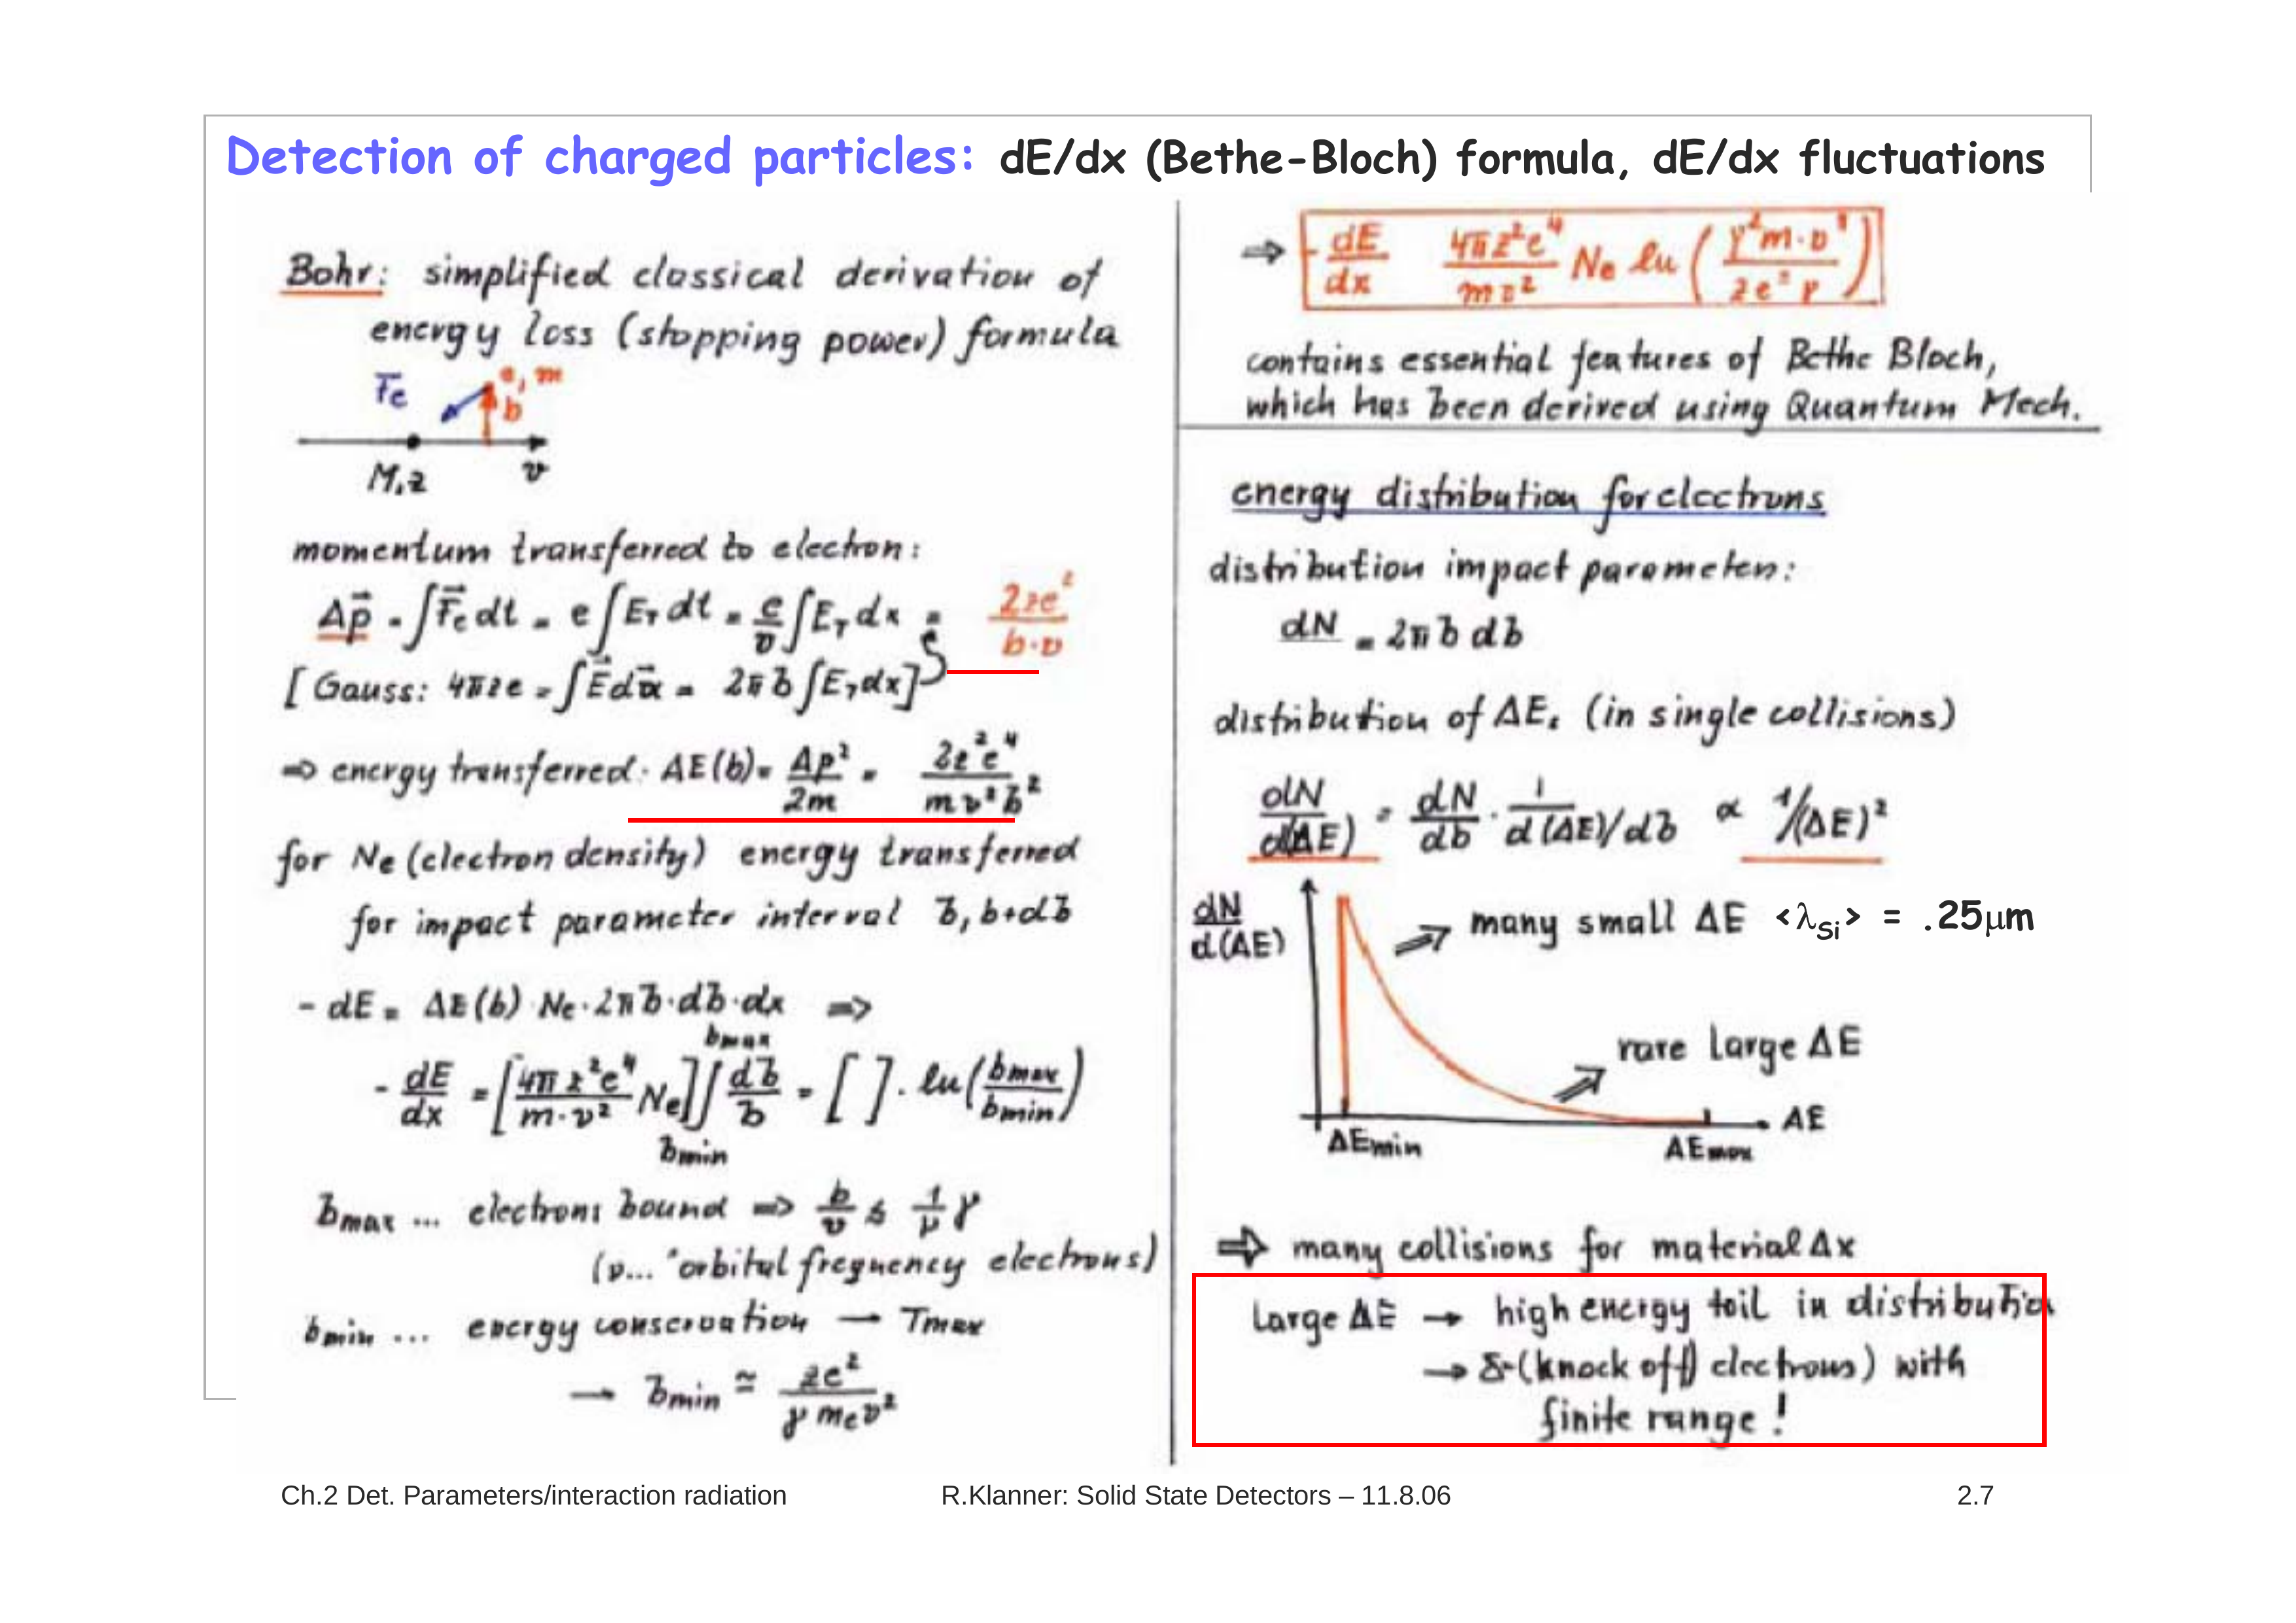 Detection of charged particles: dE/dx (Bethe-Bloch) formula, dE/dx fluctuations
Bohr: simplified classical derivation of
energy loss (stopping power) formula
F⃗e e, m
b
M,z v
momentum transferred to electron:
Δp⃗ = ∫F⃗e dt = e∫E_T dt = e/v ∫E_T dx = 2ze²/(b·v)
[Gauss: 4πze = ∫E⃗da⃗ = 2πb∫E_T dx]
⇒ energy transferred: ΔE(b) = Δp²/2m = 2z²e⁴/(mv²b²)
for Ne (electron density) energy transferred
for impact parameter interval b, b+db
- dE = ΔE(b)·Ne·2πb·db·dx ⇒
- dE/dx = [4πz²e⁴/(m·v²) Ne] ∫_bmin^bmax db/b = [ ]·ln(bmax/bmin)
bmax ... electrons bound ⇒ b/v ≤ 1/ν γ
(ν... "orbital frequency electrons)
bmin ... energy conservation → Tmax
→ bmin ≅ ze²/(γ mev²)
⇒ - dE/dx 4πz²e⁴/(mv²) Ne ln(γ²m·v³/(ze²ν))
contains essential features of Bethe Bloch,
which has been derived using Quantum Mech.
energy distribution for electrons
distribution impact parameter:
dN = 2πb db
distribution of ΔE. (in single collisions)
dN/d(ΔE) = dN/db · 1/(d(ΔE)/db) ∝ 1/(ΔE)²
dN/d(ΔE)
⇒ many small ΔE <λSi> = .25μm
⇒ rare large ΔE
ΔE
ΔEmin ΔEmax
⇒ many collisions for material Δx
Large ΔE → high energy tail in distributio
→ δ-(knock off) electrons) with
finite range!
Ch.2 Det. Parameters/interaction radiation R.Klanner: Solid State Detectors – 11.8.06 2.7